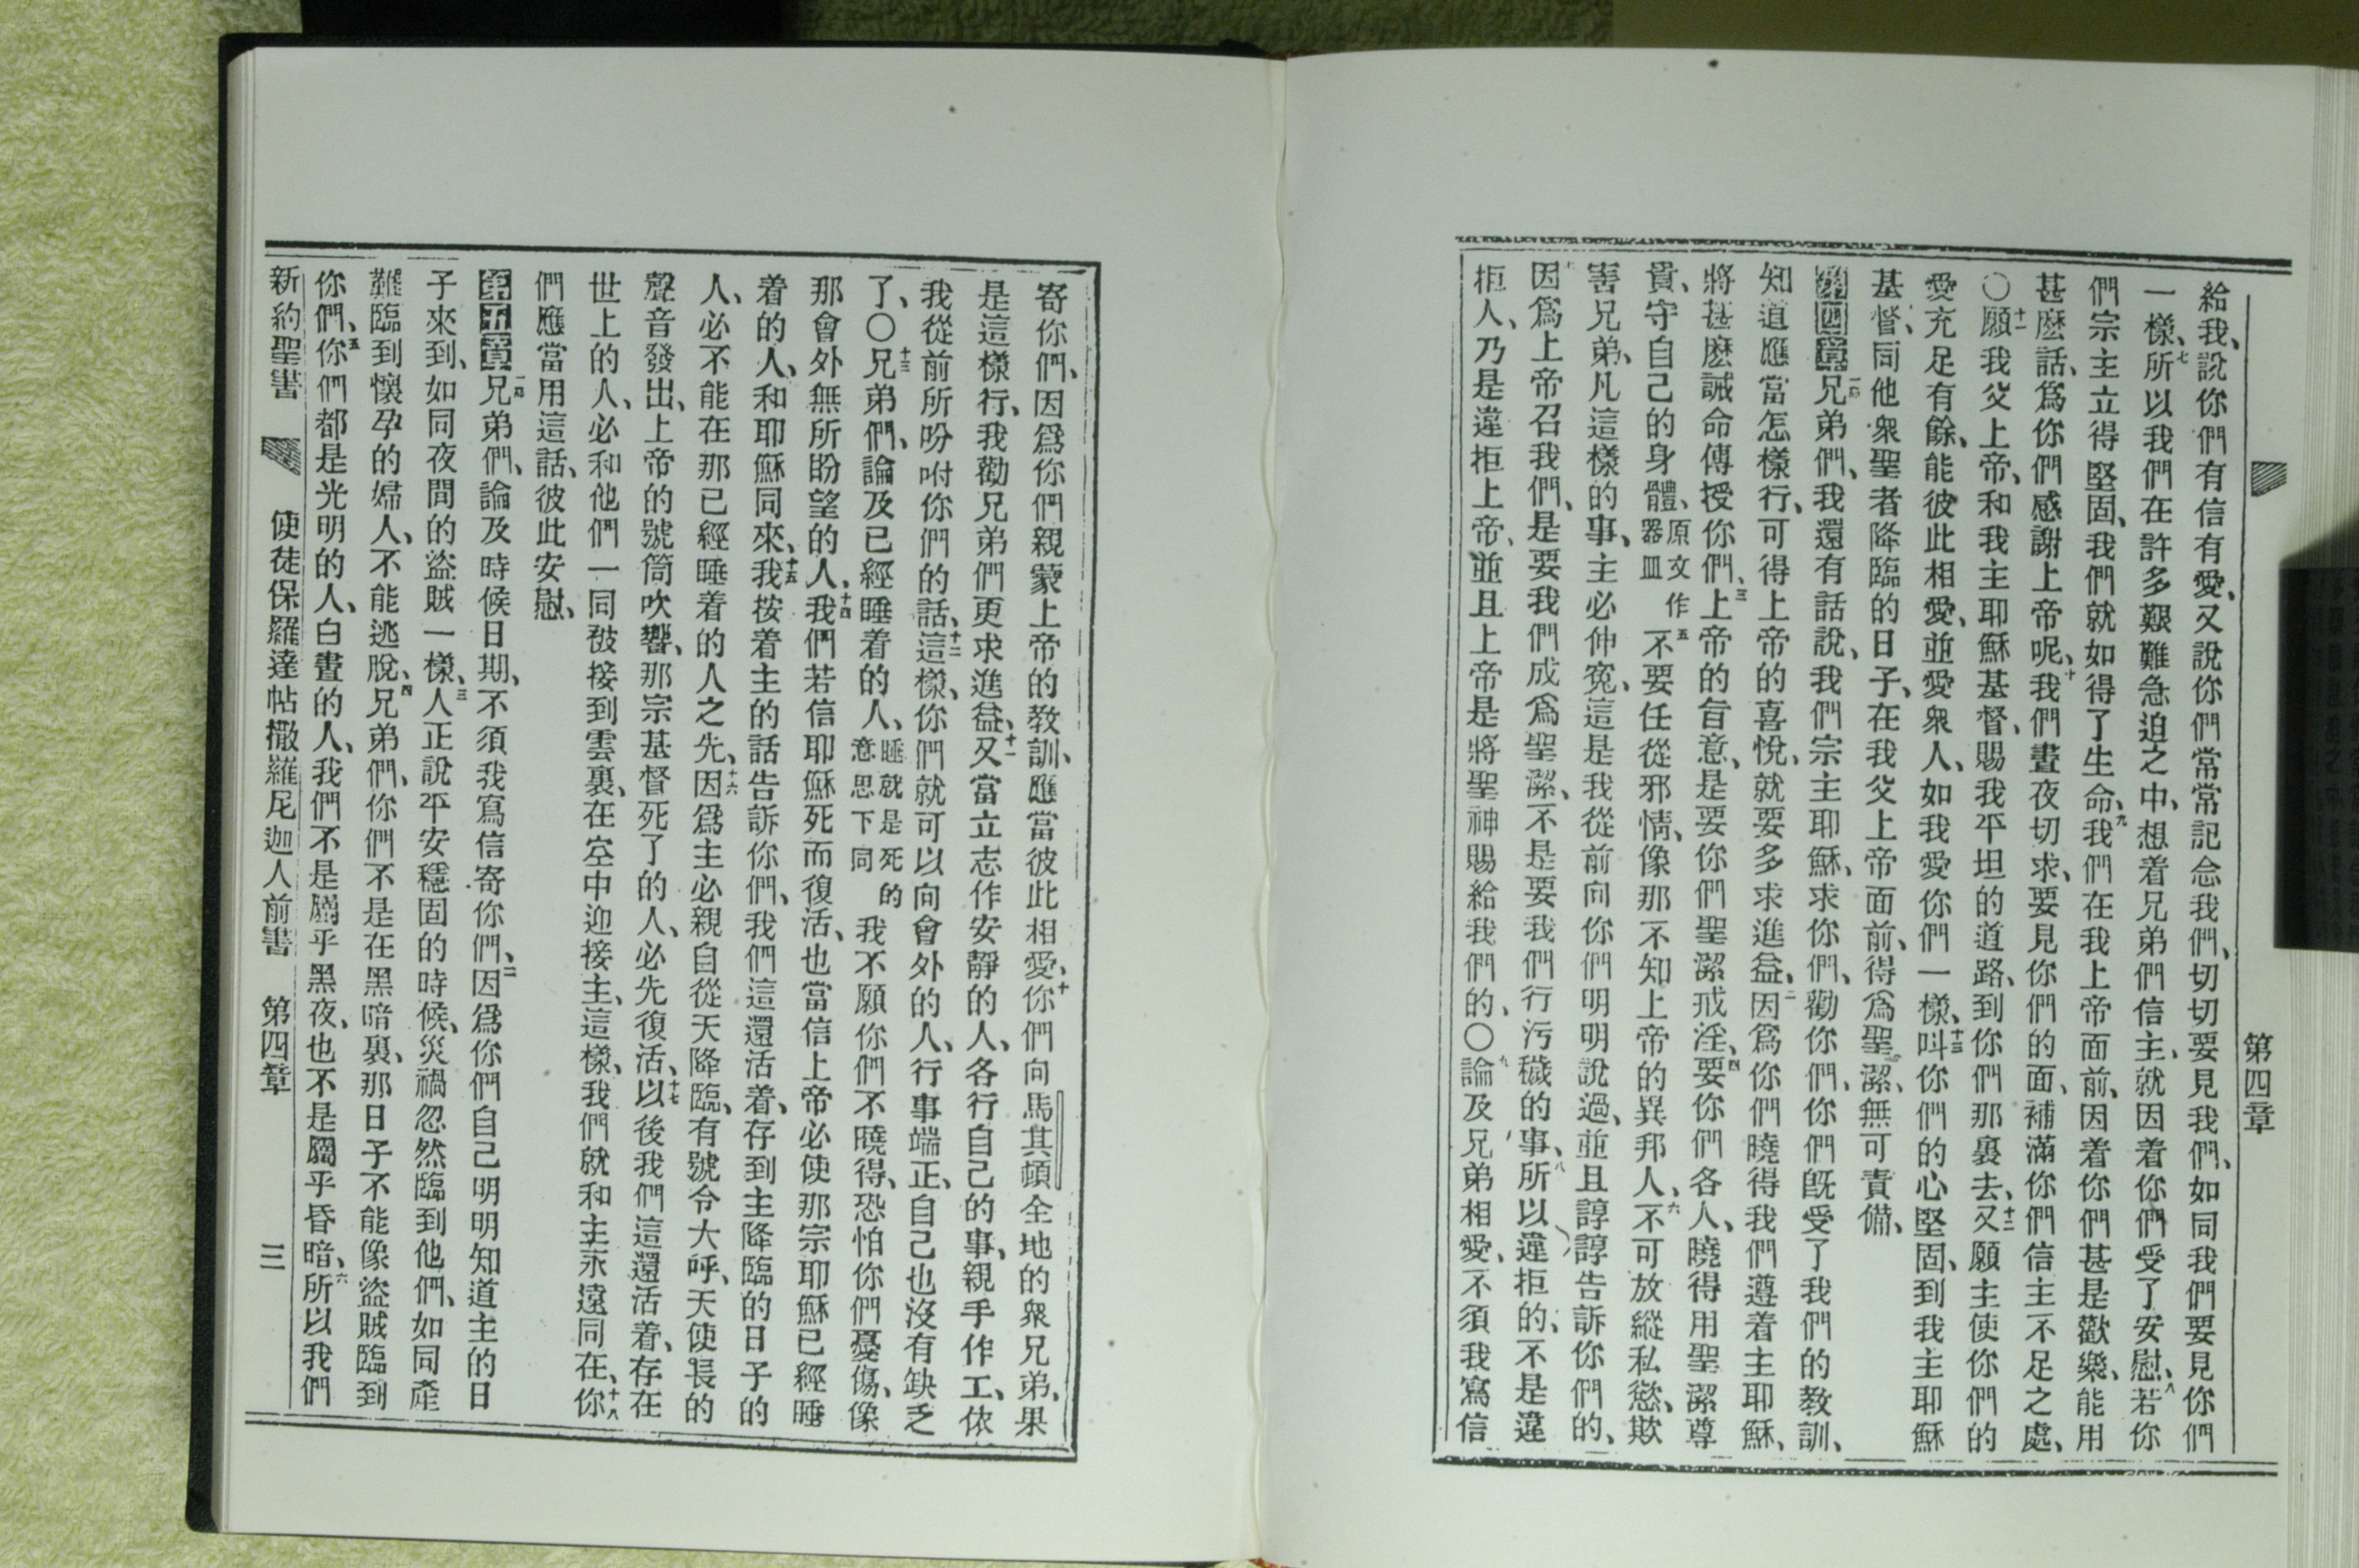 第四章
給我、說你們有信有愛、又說你們常常記念我們、切切要見我們、如同我們要見你們
一樣、七所以我們在許多艱難急迫之中、想着兄弟們信主、就因着你們受了安慰、八若你
們宗主立得堅固、我們就如得了生命、九我們在我上帝面前、因着你們甚是歡樂、能用
甚麼話、爲你們感謝上帝呢、十我們晝夜切求、要見你們的面、補滿你們信主不足之處、
〇十一願我父上帝、和我主耶穌基督、賜我平坦的道路、到你們那裏去、十二又願主使你們的
愛充足有餘、能彼此相愛、並愛衆人、如我愛你們一樣、十三叫你們的心堅固、到我主耶穌
基督、同他衆聖者降臨的日子、在我父上帝面前、得爲聖潔、無可責備、
第四章一節兄弟們、我還有話說、我們宗主耶穌、求你們、勸你們、你們旣受了我們的教訓、
知道應當怎樣行、可得上帝的喜悅、就要多求進益、二因爲你們曉得我們遵着主耶穌、
將甚麽誡命傳授你們、三上帝的旨意、是要你們聖潔戒淫、四要你們各人、曉得用聖潔尊
貴、守自己的身體、原文作器皿五不要任從邪情、像那不知上帝的異邦人、六不可放縱私慾、欺
害兄弟、凡這樣的事、主必伸冤、這是我從前向你們明明說過、並且諄諄告訴你們的、
七因爲上帝召我們、是要我們成爲聖潔、不是要我們行污穢的事、八所以違拒的、不是違
拒人、乃是違拒上帝、並且上帝是將聖神賜給我們的、〇九論及兄弟相愛、不須我寫信
寄你們、因爲你們親蒙上帝的教訓、應當彼此相愛、十你們向馬其頓全地的衆兄弟、果
是這樣行、我勸兄弟們更求進益、十一又當立志作安靜的人、各行自己的事、親手作工、依
我從前所吩咐你們的話、十二這樣、你們就可以向會外的人、行事端正、自己也沒有缺乏
了、〇十三兄弟們、論及已經睡着的人、睡就是死的意思下同我不願你們不曉得、恐怕你們憂傷、像
那會外無所盼望的人、十四我們若信耶穌死而復活、也當信上帝必使那宗耶穌已經睡
着的人、和耶穌同來、十五我按着主的話告訴你們、我們這還活着、存到主降臨的日子的
人、必不能在那已經睡着的人之先、十六因爲主必親自從天降臨、有號令大呼、天使長的
聲音發出、上帝的號筒吹響、那宗基督死了的人、必先復活、十七以後我們這還活着、存在
世上的人、必和他們一同被接到雲裏、在空中迎接主、這樣、我們就和主永遠同在、十八你
們應當用這話、彼此安慰、
第五章一節兄弟們、論及時候日期、不須我寫信寄你們、二因爲你們自己明明知道主的日
子來到、如同夜間的盜賊一樣、三人正說平安穩固的時候、災禍忽然臨到他們、如同產
難臨到懷孕的婦人、不能逃脫、四兄弟們、你們不是在黑暗裏、那日子不能像盜賊臨到
你們、五你們都是光明的人、白晝的人、我們不是屬乎黑夜、也不是屬乎昏暗、六所以我們
新約聖書 使徒保羅達帖撒羅尼迦人前書 第四章 三